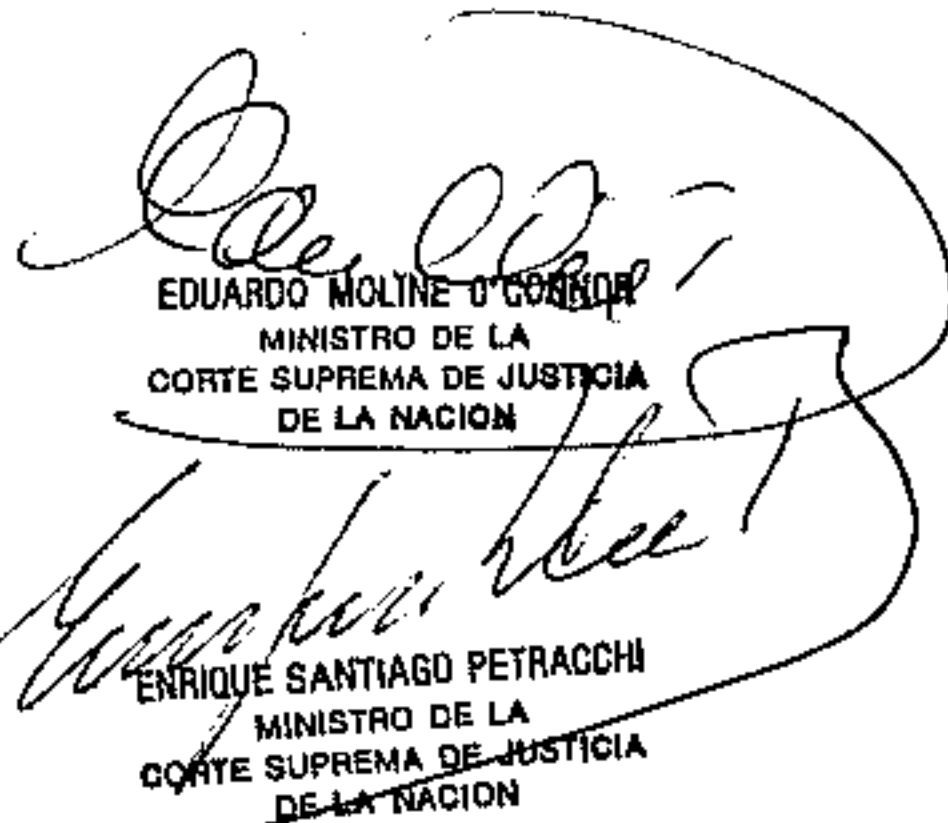 EDUARDO MOLINE O'CONNOR
MINISTRO DE LA
CORTE SUPREMA DE JUSTICIA
DE LA NACION
ENRIQUE SANTIAGO PETRACCHI
MINISTRO DE LA
CORTE SUPREMA DE JUSTICIA
DE LA NACION